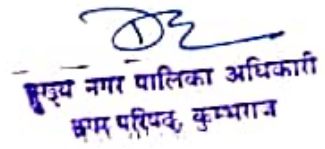 मुख्य नगर पालिका अधिकारी
नगर परिषद, कुम्भराज